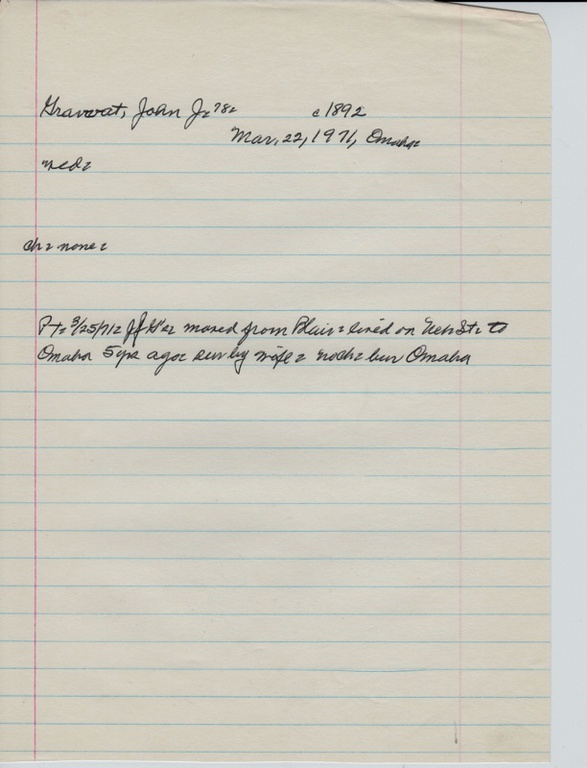 Gravwat, John J. 78. c1892
Mar. 22, 1971, Omaha
wed.
ch. none.
PT. 3/25/71. moved from Blair. lived on Neb St. to
Omaha 5 yrs ago. sur by wife. no ch. bur Omaha